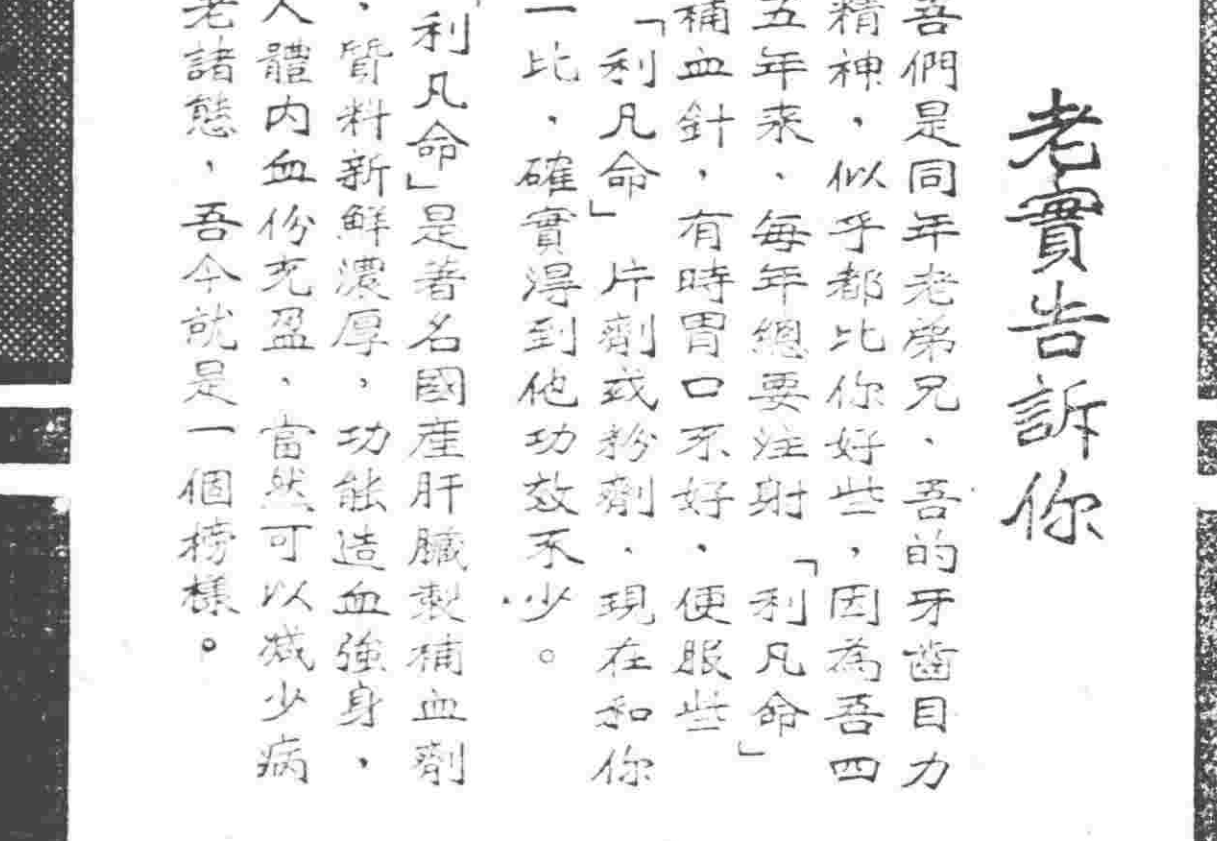 老實告訴你
吾們是同年老弟兄、吾的牙齒目力
精神，似乎都比你好些，因為吾四
五年來、每年總要注射「利凡命」
補血針，有時胃口不好、便服些
「利凡命」片劑或粉劑、現在和你
一比，確實得到他功效不少。
「利凡命」是著名國產肝臟製補血劑
，質料新鮮濃厚，功能造血強身，
人體內血份充盈、當然可以減少病
老諸態，吾今就是一個榜樣。